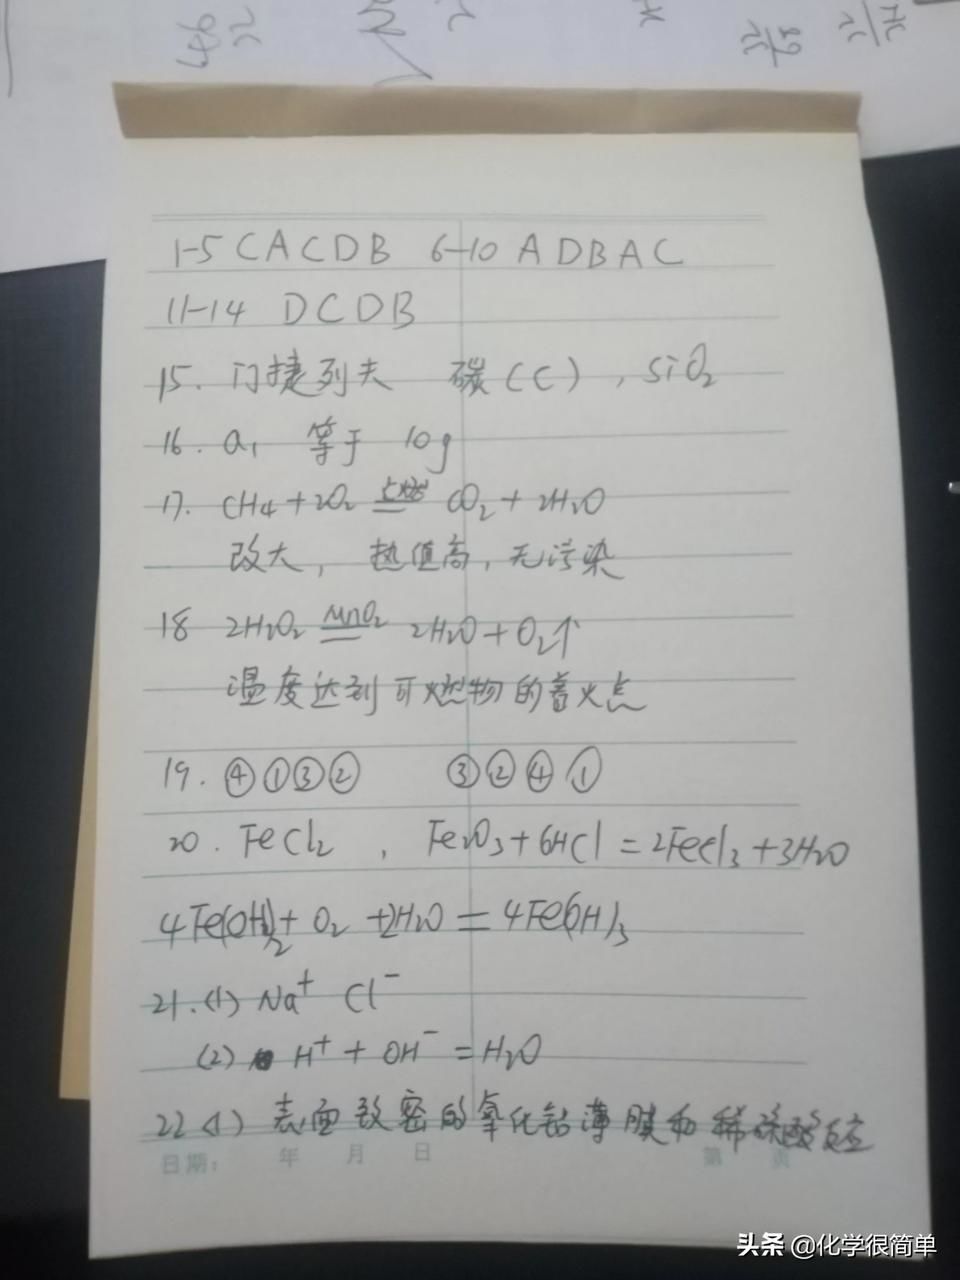 1-5 CACDB 6-10 ADBAC
11-14 DCDB
15. 门捷列夫 碳(C), SiO₂
16. a₁ 等于 10g
17. CH₄+2O₂ 点燃 CO₂+2H₂O
改大, 热值高, 无污染
18 2H₂O₂ MnO₂ 2H₂O+O₂↑
温度达到可燃物的着火点
19. ④①③② ③②④①
20. FeCl₂, Fe₂O₃+6HCl=2FeCl₃+3H₂O
4Fe(OH)₂+O₂+2H₂O=4Fe(OH)₃
21.(1) Na⁺ Cl⁻
(2) H⁺+OH⁻=H₂O
22(1) 表面致密的氧化铝薄膜和稀硫酸反应
日期: 年 月 日 第 页
头条 @化学很简单